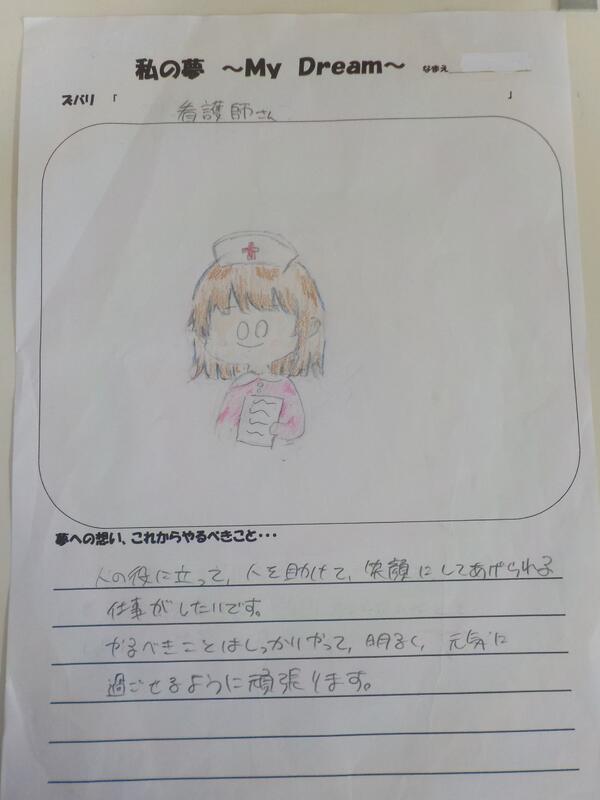 私の夢 ～My Dream～ なまえ
ズバリ 「 看護師さん 」
夢への想い、これからやるべきこと・・・
人の役に立って、人を助けて、笑顔にしてあげられる
仕事がしたいです。
やるべきことはしっかりやって、明るく、元気に
過ごせるように頑張ります。